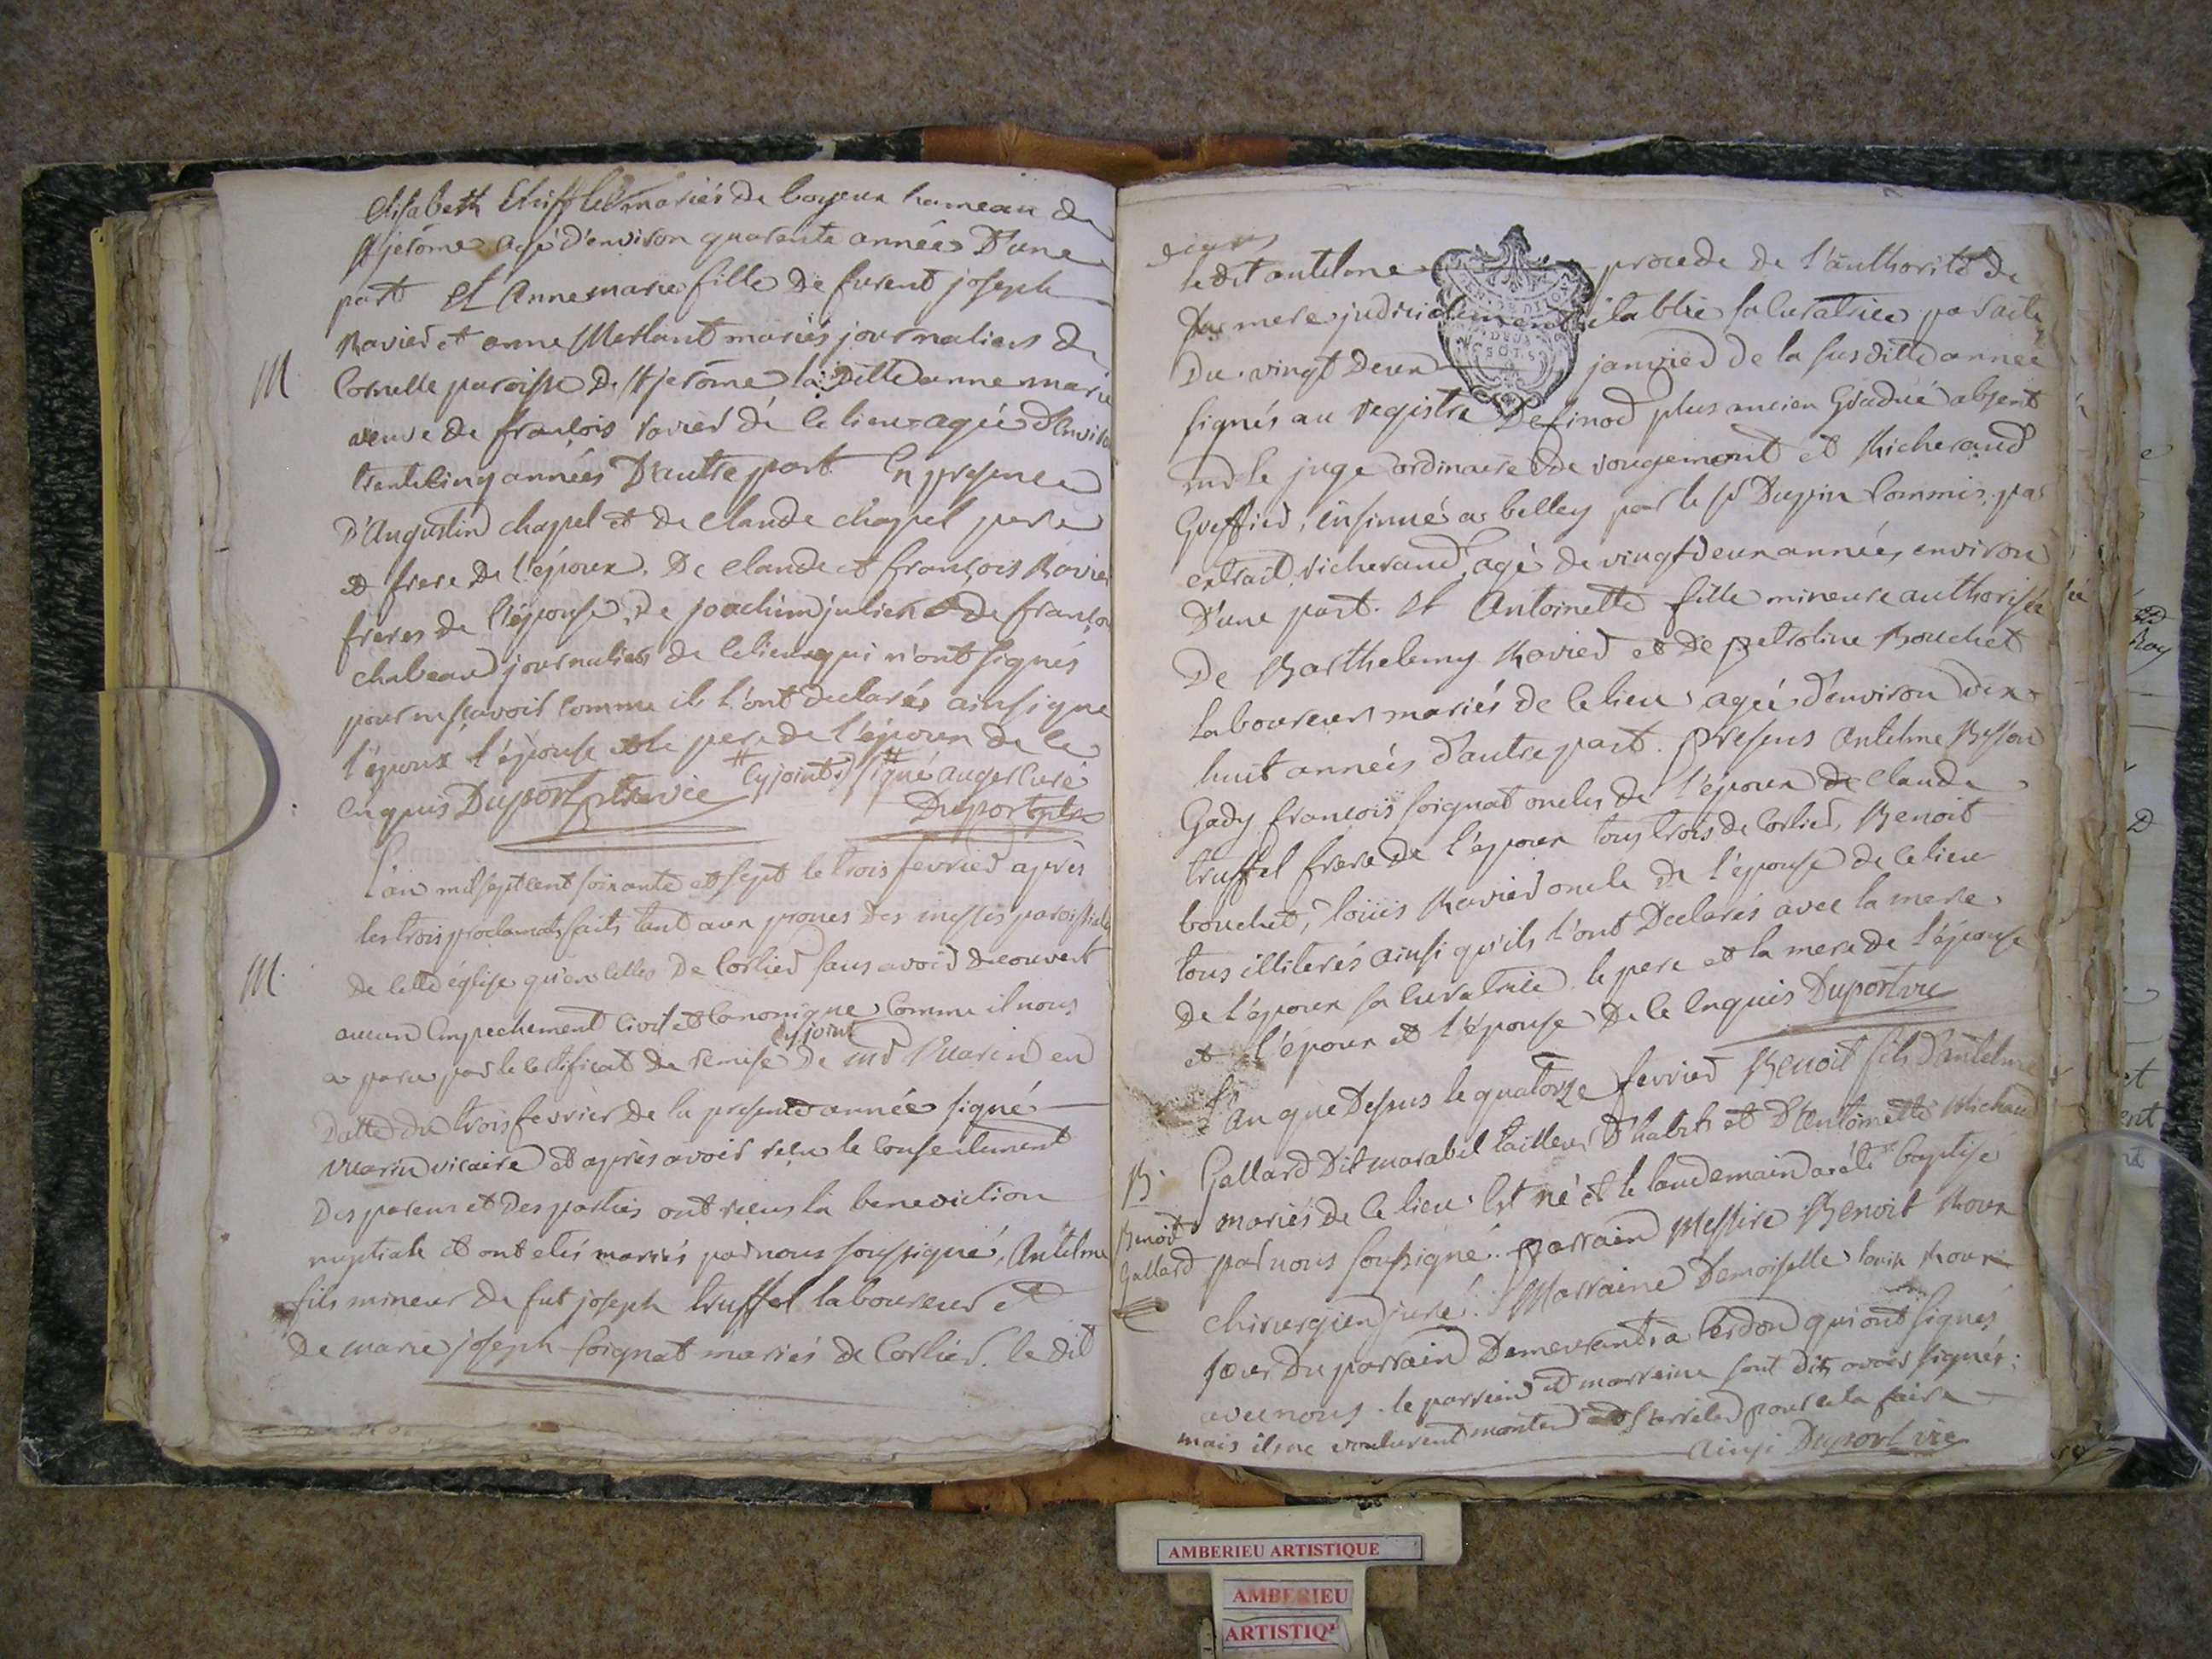 Elisabeth mariés de boyeux hameau de
St jerôme agé d'environ quarente années D'une
part Et Annemarie fille de furent joseph
Ravier et anne Merlant mariés journaliers de
M
Cornelle paroisse De St jerôme la ditte anne marie
veuve de françois ravier de ce lieu agée d'Enviro
trentecinq années D'autre part En presence
D'Augustin chapel et de claude chapel pere
et frere de l'époux. De claude et françois Ravier
freres de l'épouse, de joachim julien et de françois
chabeaud journaliers de ce lieu qui n'ont signés
pour ne sçavoir comme ils l'ont declarés ainsi que
l'époux l'épouse et le pere de l'époux de ce
enquis Duport ptre vic # cyjointe # signé auger curé
Duport ptre
L'an mil sept cent soixante et sept le trois fevrier après
les trois proclamats faits tant aux prones des messes paroissiales
M.
de cette église qu'en celles De Corlier sans avoir découvert
aucun Empechement civil et canonique comme il nous
a paru par le certificat de remise cyjoint De md Vuarin en
datte du trois fevrier de la presente année signé
vuarin vicaire et après avoir reçu le consentement
Des parens et Des parties ont reçus la benediction
nuptiale et ont etés mariés par nous soussigné, Antelme
fils mineur de fut joseph truffet laboureur et
de marie joseph soignat mariés de Corlier. le dit
le dit antelme procede de l'authorité de
sa mere judiciellement établie sa curatrice par acte
Du vingt Deux janvier de la susditte année
signés au registre Definod plus ancien Gradué absent
md le juge ordinaire de rougemont et Richerand
Greffier, insinué a belley par le sr Dupin Commis, par
extrait richerand, agé de vingt deux années environ
D'une part. Et Antoinette fille mineure authorisée
De Barthelemy Ravier et de petroline Bouchet
laboureurs mariés de ce lieu agée d'environ dix
huit années d'autre part. Presens Antelme Besson
Gady françois soignat oncles de l'époux de claude
truffet frere de l'époux tous trois de Corlier, Benoit
bouchet, loüis Ravier oncle de l'épouse de ce lieu
tous illiterés ainsi qu'ils l'ont Declarés avec la mere
De l'époux sa curatrice le pere et la mere de l'épouse
et l'époux et l'épouse De ce Enquis Duport vic
L'an que Dessus le quatorze fevrier Benoit fils D'antelme
B. Gallard Dit marabel tailleur D'habits et D'Antoinette Michaud
Benoit mariés de ce lieu est né et le landemain a été baptisé
Gallard par nous soussigné. Parrain Messire Benoit Roux
chirurgien juré. Marraine Demoiselle louise Roux
sœur Du parrain Demeurants a Cerdon qui ont signés
avec nous. le parrain et marraine sont dits avoir signés;
mais ils ne voulurent monter et s'arreter pour cela faire
ainsi Duport vic
AMBERIEU ARTISTIQUE
AMBERIEU
ARTISTIQ